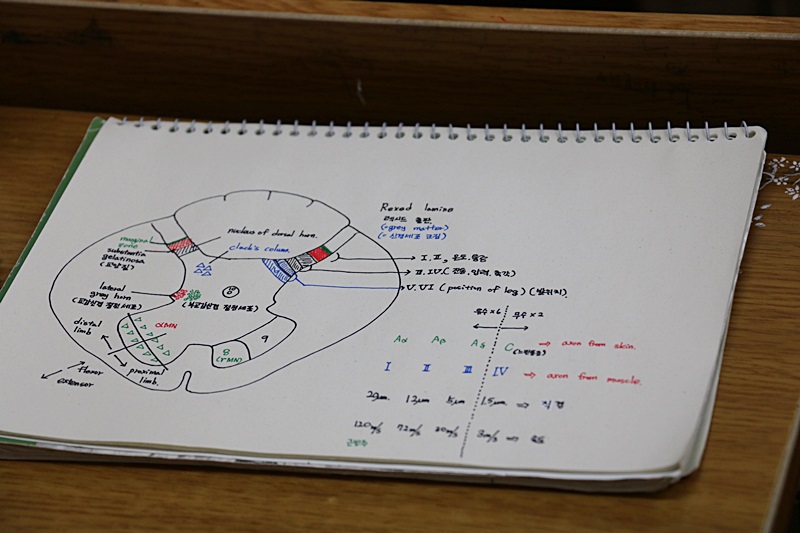 Rexed lamina
렉시드 층판
(=grey matter)
(= 신경세포 모임)
nucleus of dorsal horn.
clack's column
marginal zone
substantia
gelatinosa
(교양질)
I.II, 온도.통증
III.IV.(진동, 압력, 촉각)
V.VI (position of leg) (발위치)
lateral
grey horn
(교감신경 절전세포)
(부교감신경 절전세포)
10
distal
limb
αMN
proximal
limb.
flexor
extensor
8
(γMN)
9
유수 x6
무수 x2
Aα Aβ Aδ C → axon from skin.
I II III IV → axon from muscle.
20μm 12μm 5μm 1.5μm ⇒ 직경
120m/s 72m/s 30m/s 2m/s ⇒ 속도
근방추